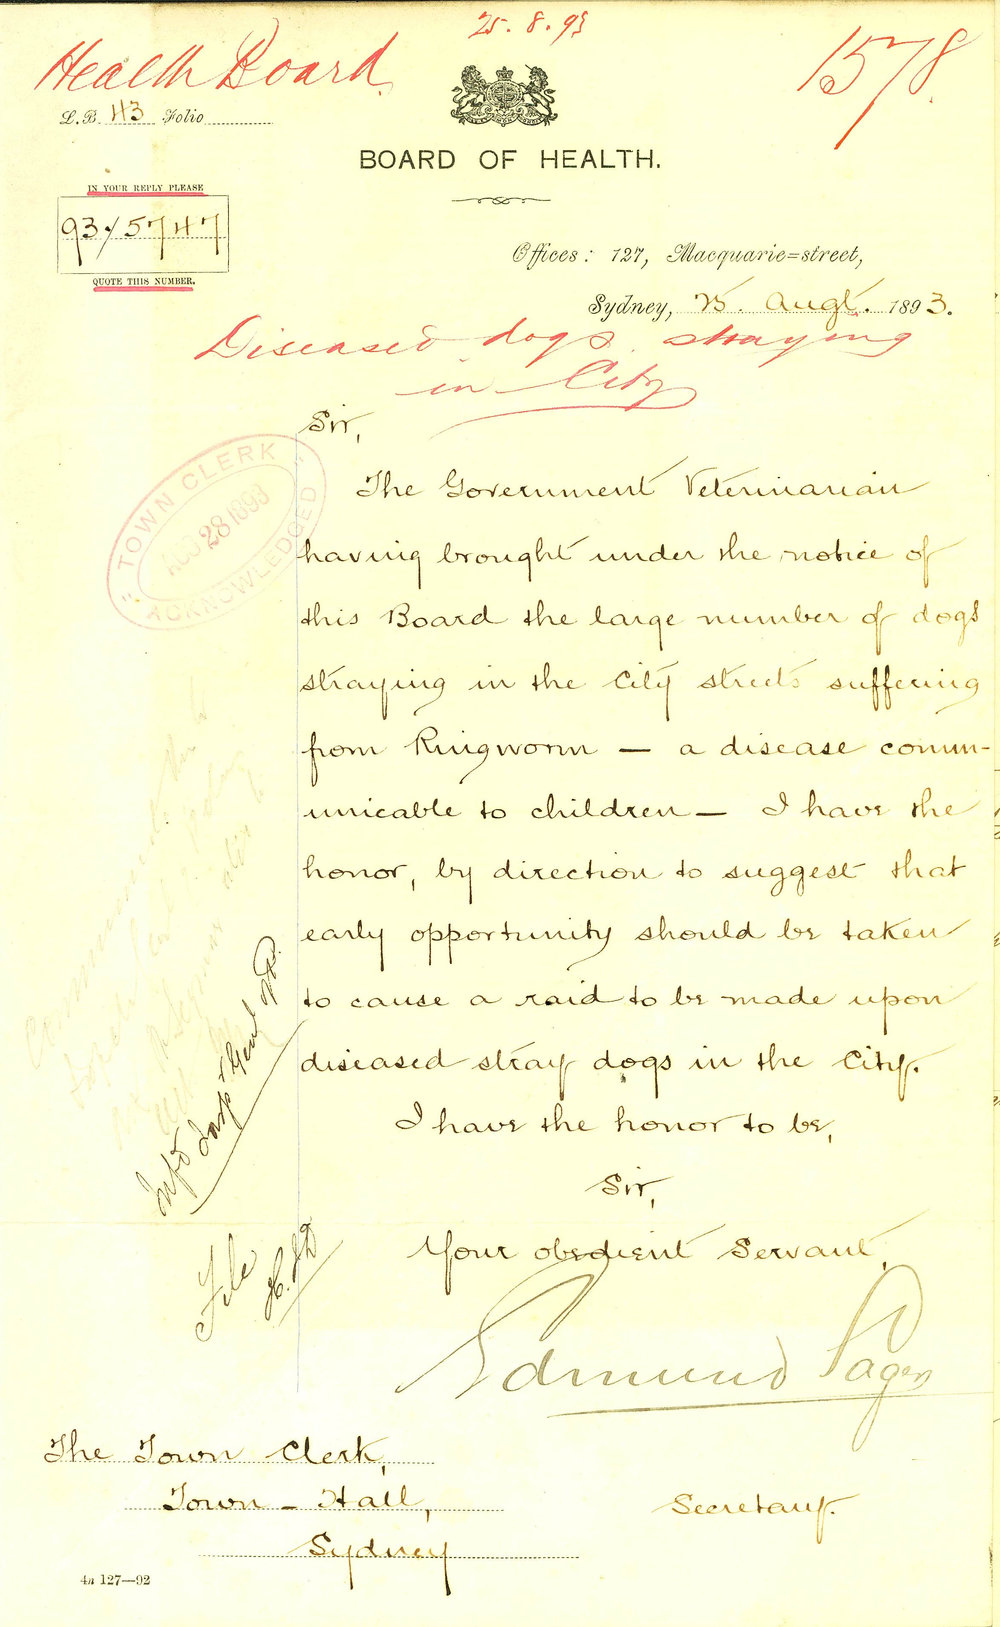 25.8.93
Health Board
1578.
L.B. 43 Folio
BOARD OF HEALTH.
IN YOUR REPLY PLEASE
93/5747
QUOTE THIS NUMBER.
Offices: 127, Macquarie=street,
Sydney, 25. Augt. 1893.
Diseased dogs straying
in City
Sir,
"TOWN CLERK"
AUG 28 1893
ACKNOWLEDGED
The Government Veterinarian
having brought under the notice of
this Board the large number of dogs
straying in the City streets suffering
from Ringworm — a disease comm-
unicable to children — I have the
honor, by direction to suggest that
early opportunity should be taken
to cause a raid to be made upon
diseased stray dogs in the City.
I have the honor to be,
Sir,
Your obedient Servant,
Edmund Sager
Secretary.
The Town Clerk,
Town-Hall,
Sydney
File
4n 127—92